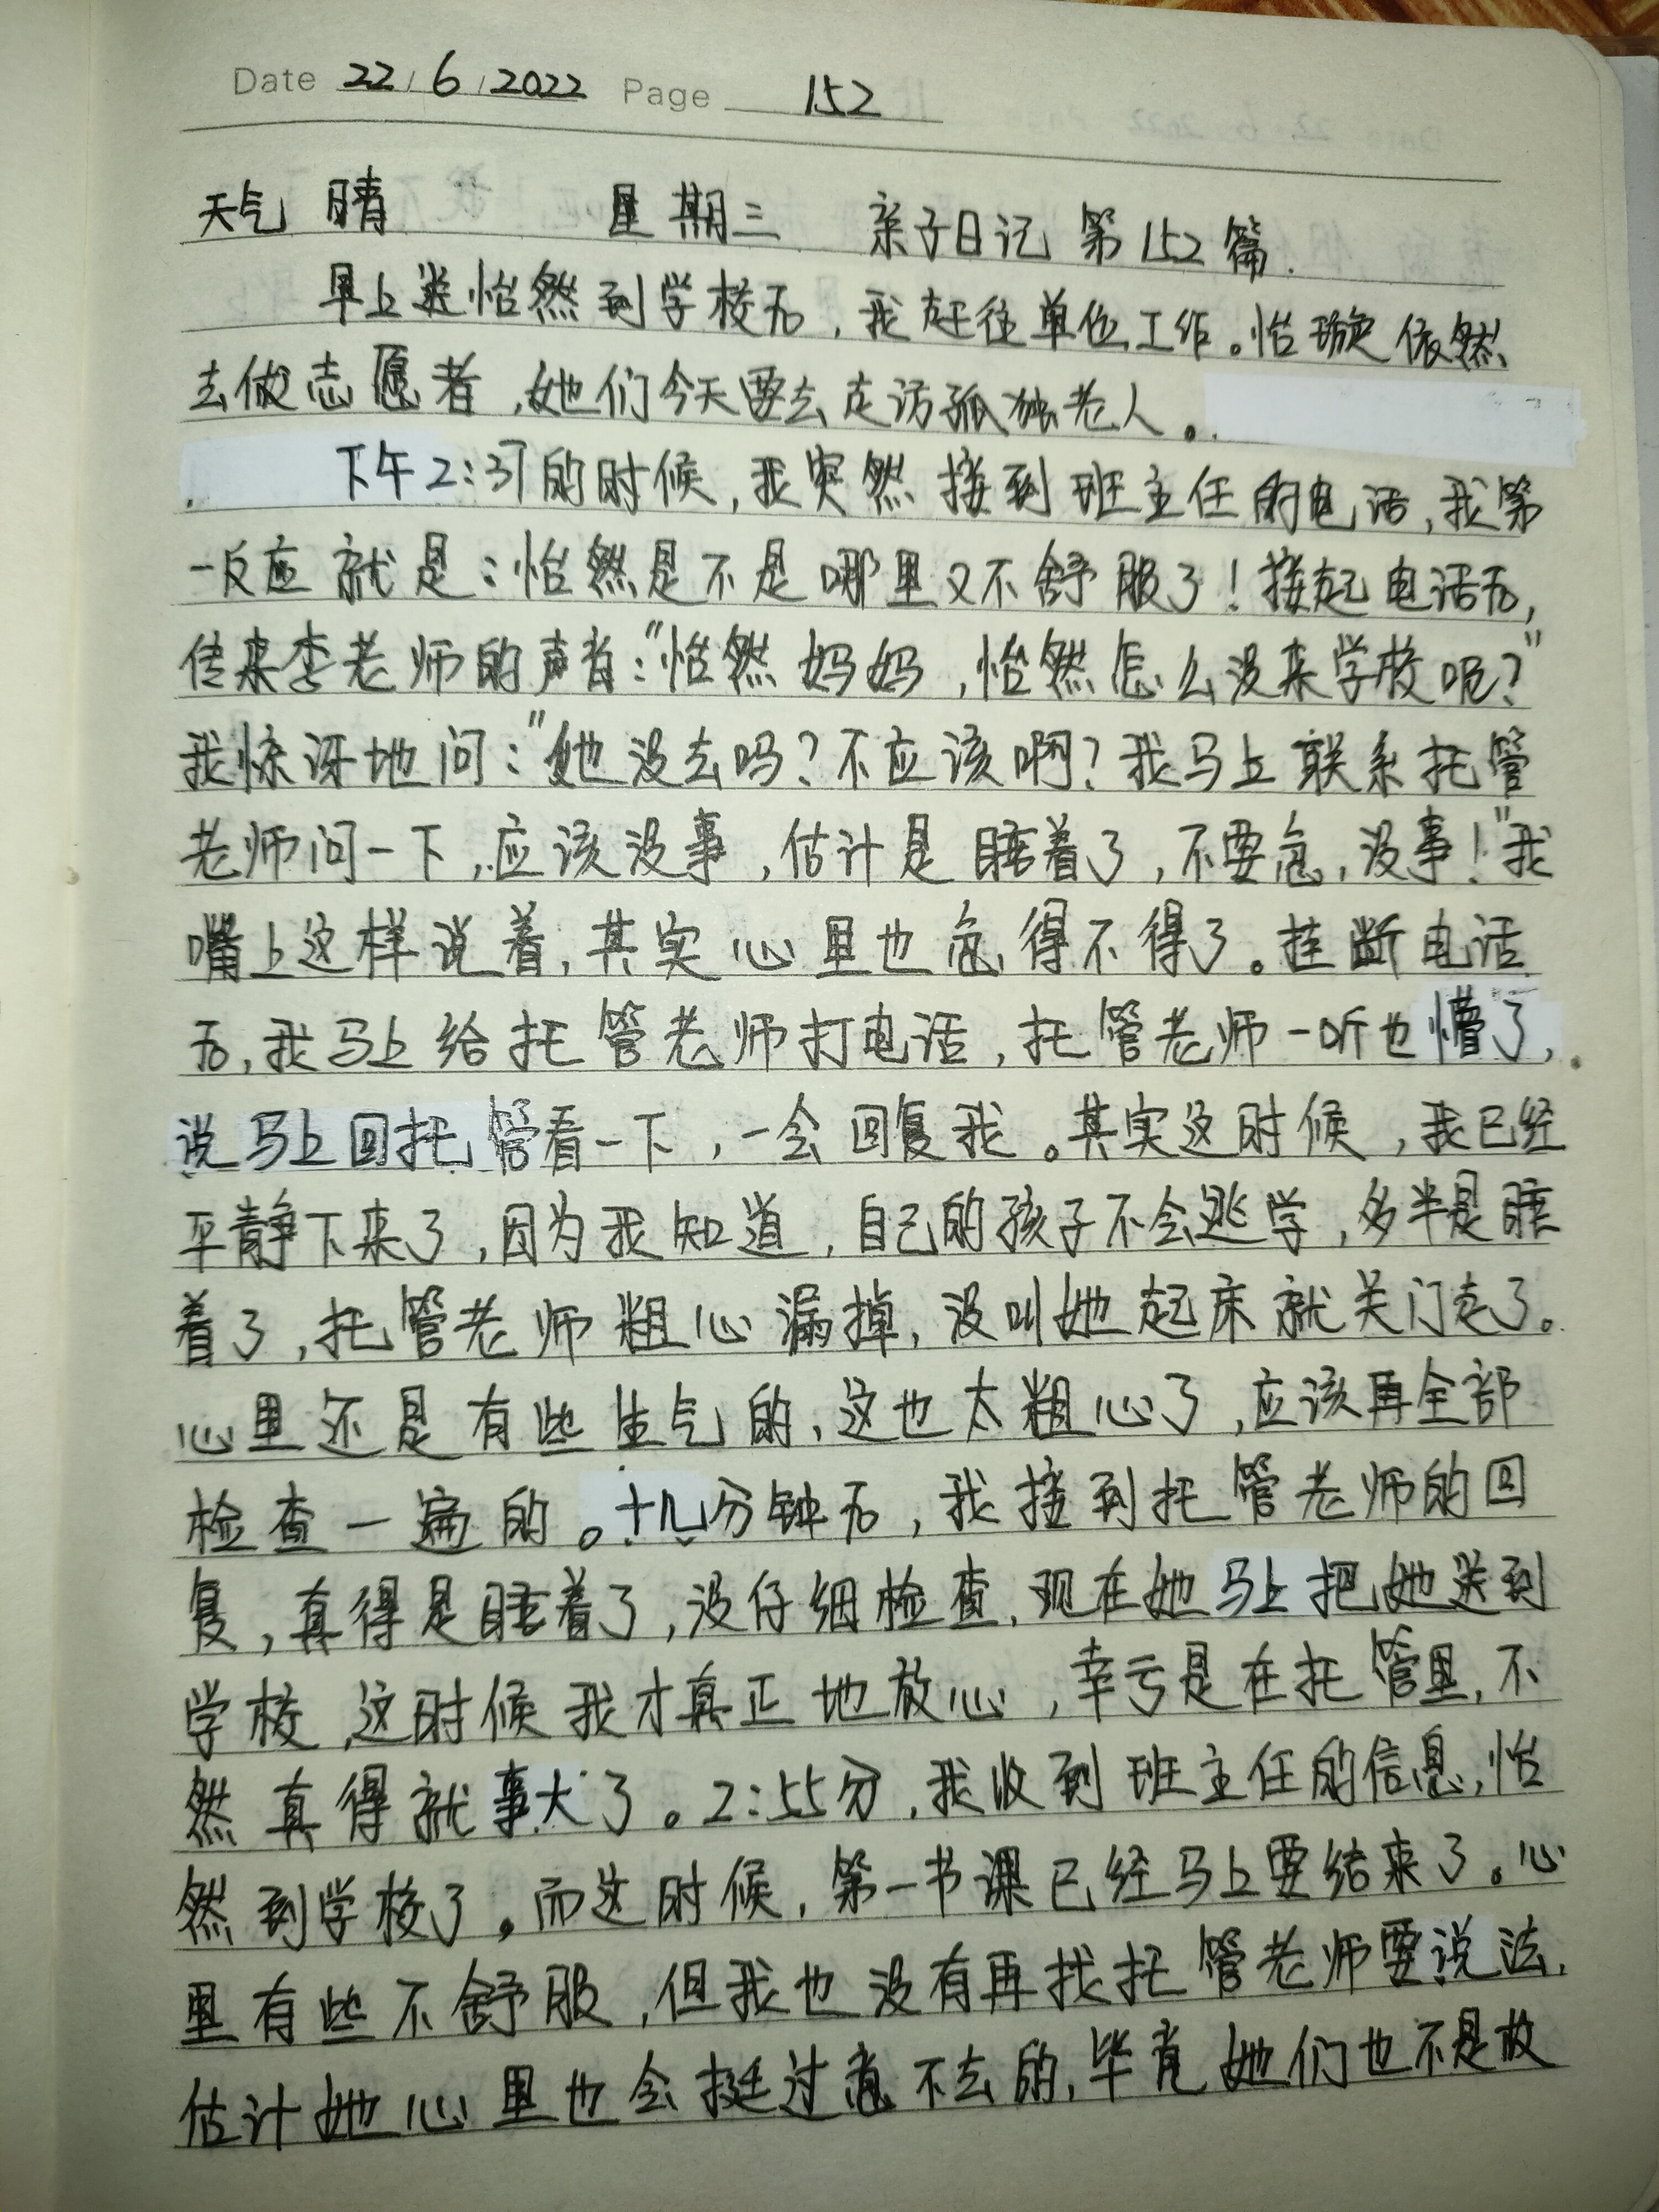 Date 22/6/2022 Page 152
天气 晴 星期三 亲子日记 第152篇.
早上送怡然到学校后,我赶往单位工作。怡璇依然
去做志愿者,她们今天要去走访孤独老人。
下午2:37的时候,我突然接到班主任的电话,我第
一反应就是:怡然是不是哪里又不舒服了!接起电话后,
传来李老师的声音:"怡然妈妈,怡然怎么没来学校呢?"
我惊讶地问:"她没去吗?不应该啊?我马上联系托管
老师问一下,应该没事,估计是睡着了,不要急,没事!"我
嘴上这样说着,其实心里也急得不得了。挂断电话
后,我马上给托管老师打电话,托管老师一听也懵了,
说马上回托管看一下,一会回复我。其实这时候,我已经
平静下来了,因为我知道,自己的孩子不会逃学,多半是睡
着了,托管老师粗心漏掉,没叫她起床就关门走了。
心里还是有些生气的,这也太粗心了,应该再全部
检查一遍的。十几分钟后,我接到托管老师的回
复,真得是睡着了,没仔细检查,现在她马上把她送到
学校,这时候我才真正地放心,幸亏是在托管里,不
然真得就事大了。2:55分,我收到班主任的信息,怡
然到学校了。而这时候,第一节课已经马上要结束了。心
里有些不舒服,但我也没有再找托管老师要说法,
估计她心里也会挺过意不去的,毕竟她们也不是故